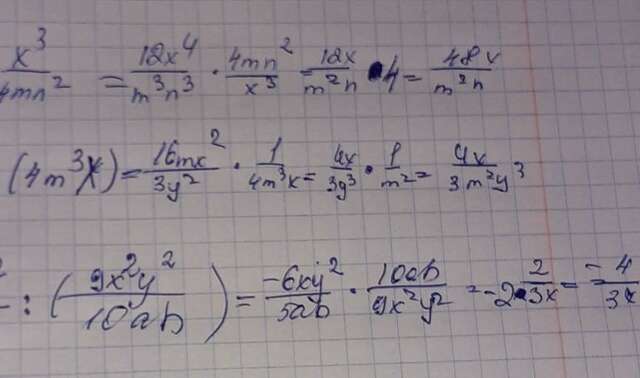 x³/4mn² = 12x⁴/m³n³ · 4mn²/x³ = 12x/m²n · 4 = 48x/m²n
(4m³x) = 16mx²/3y² · 1/4m³x = 4x/3y³ · 1/m² = 4x/3m²y³
: (9x²y²/10ab) = -6xy²/5ab · 10ab/9x²y² = -2 · 2/3x = -4/3x